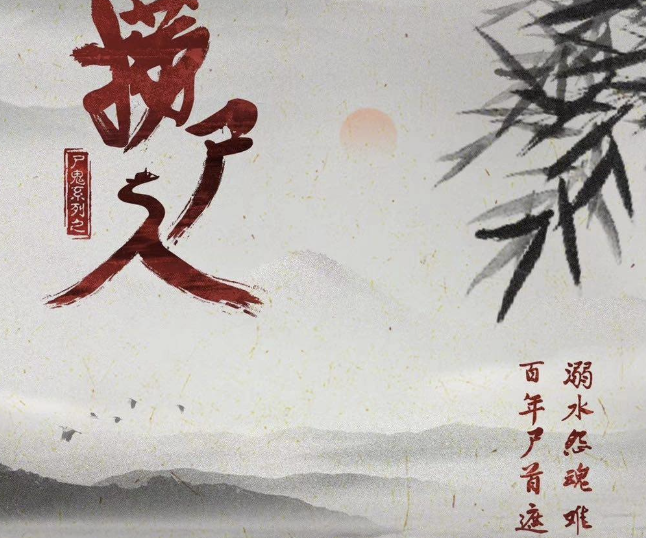 捞尸人
尸鬼系列之
溺水怨魂难
百年尸首遮